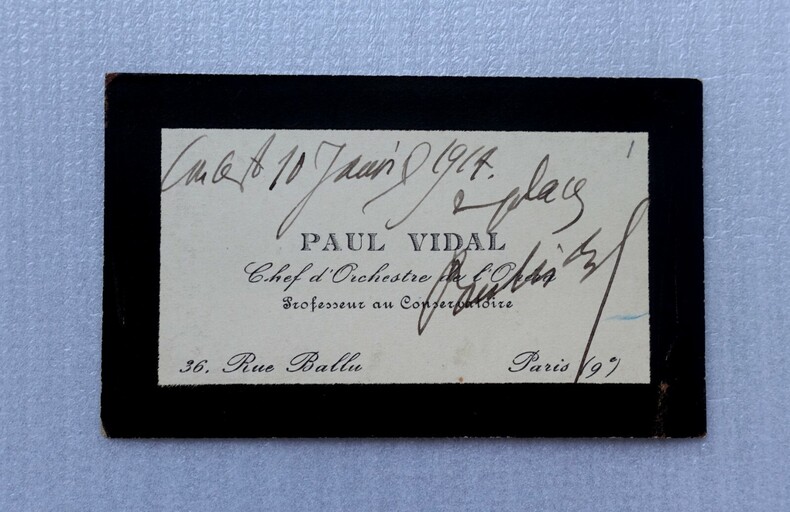 10 Janvier 1917.
PAUL VIDAL
Chef d'Orchestre de l'Opéra
Professeur au Conservatoire
36. Rue Ballu Paris (9ᵉ)